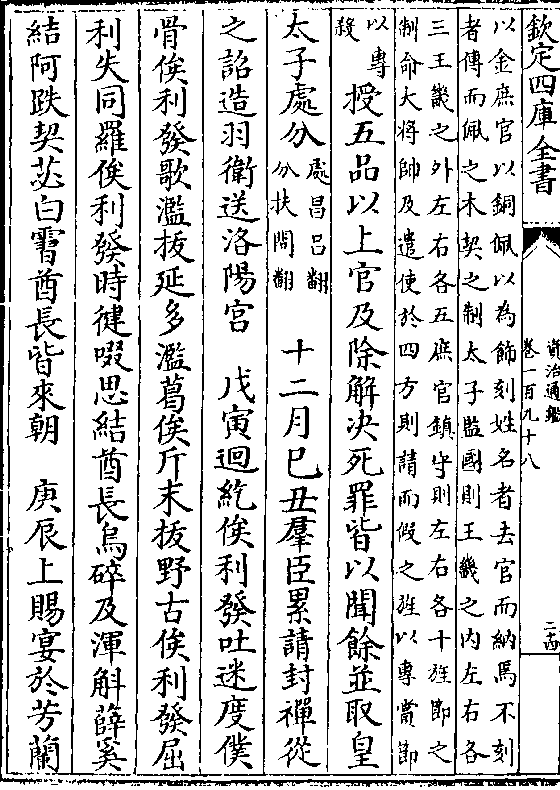 欽定四庫全書
資治通鑑
卷一百九十八
二十四
以金庶官以銅佩以為飾刻姓名者去官而納焉不刻
者傳而佩之木契之制太子監國則王畿之内左右各
三王畿之外左右各五庶官鎮守則左右各十旌節之
制命大將帥及遣使於四方則請而假之旌以專賞節
以專殺授五品以上官及除解决死罪皆以聞餘並取皇
太子處分處昌呂翻分扶問翻 十二月已丑羣臣累請封禪從
之詔造羽衛送洛陽宮 戊寅迴紇俟利發吐迷度僕
骨俟利發歌濫拔延多濫葛俟斤末拔野古俟利發屈
利失同羅俟利發時健啜思結酋長烏碎及渾斛薛奚
結阿跌契苾白霫酋長皆來朝 庚辰上賜宴於芳蘭